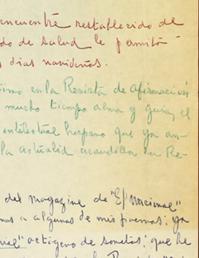 ncuentre restablecido de
do de salud le permita
s dias navideños.
ismo en la Revista de Afirmación
mucho tiempo alma y guia, el
intelectual hispano que ya an-
la actualidad acaudilla en Re-
del magazine de "El Nacional"
mas a algunos de mis poemas: ya
octigero de sonetos: que he